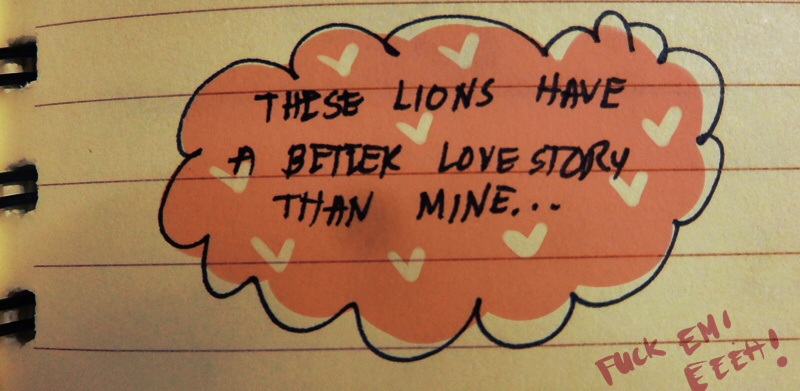 THESE LIONS HAVE
A BETTER LOVE STORY
THAN MINE...
FUCK EM!
EEEH!